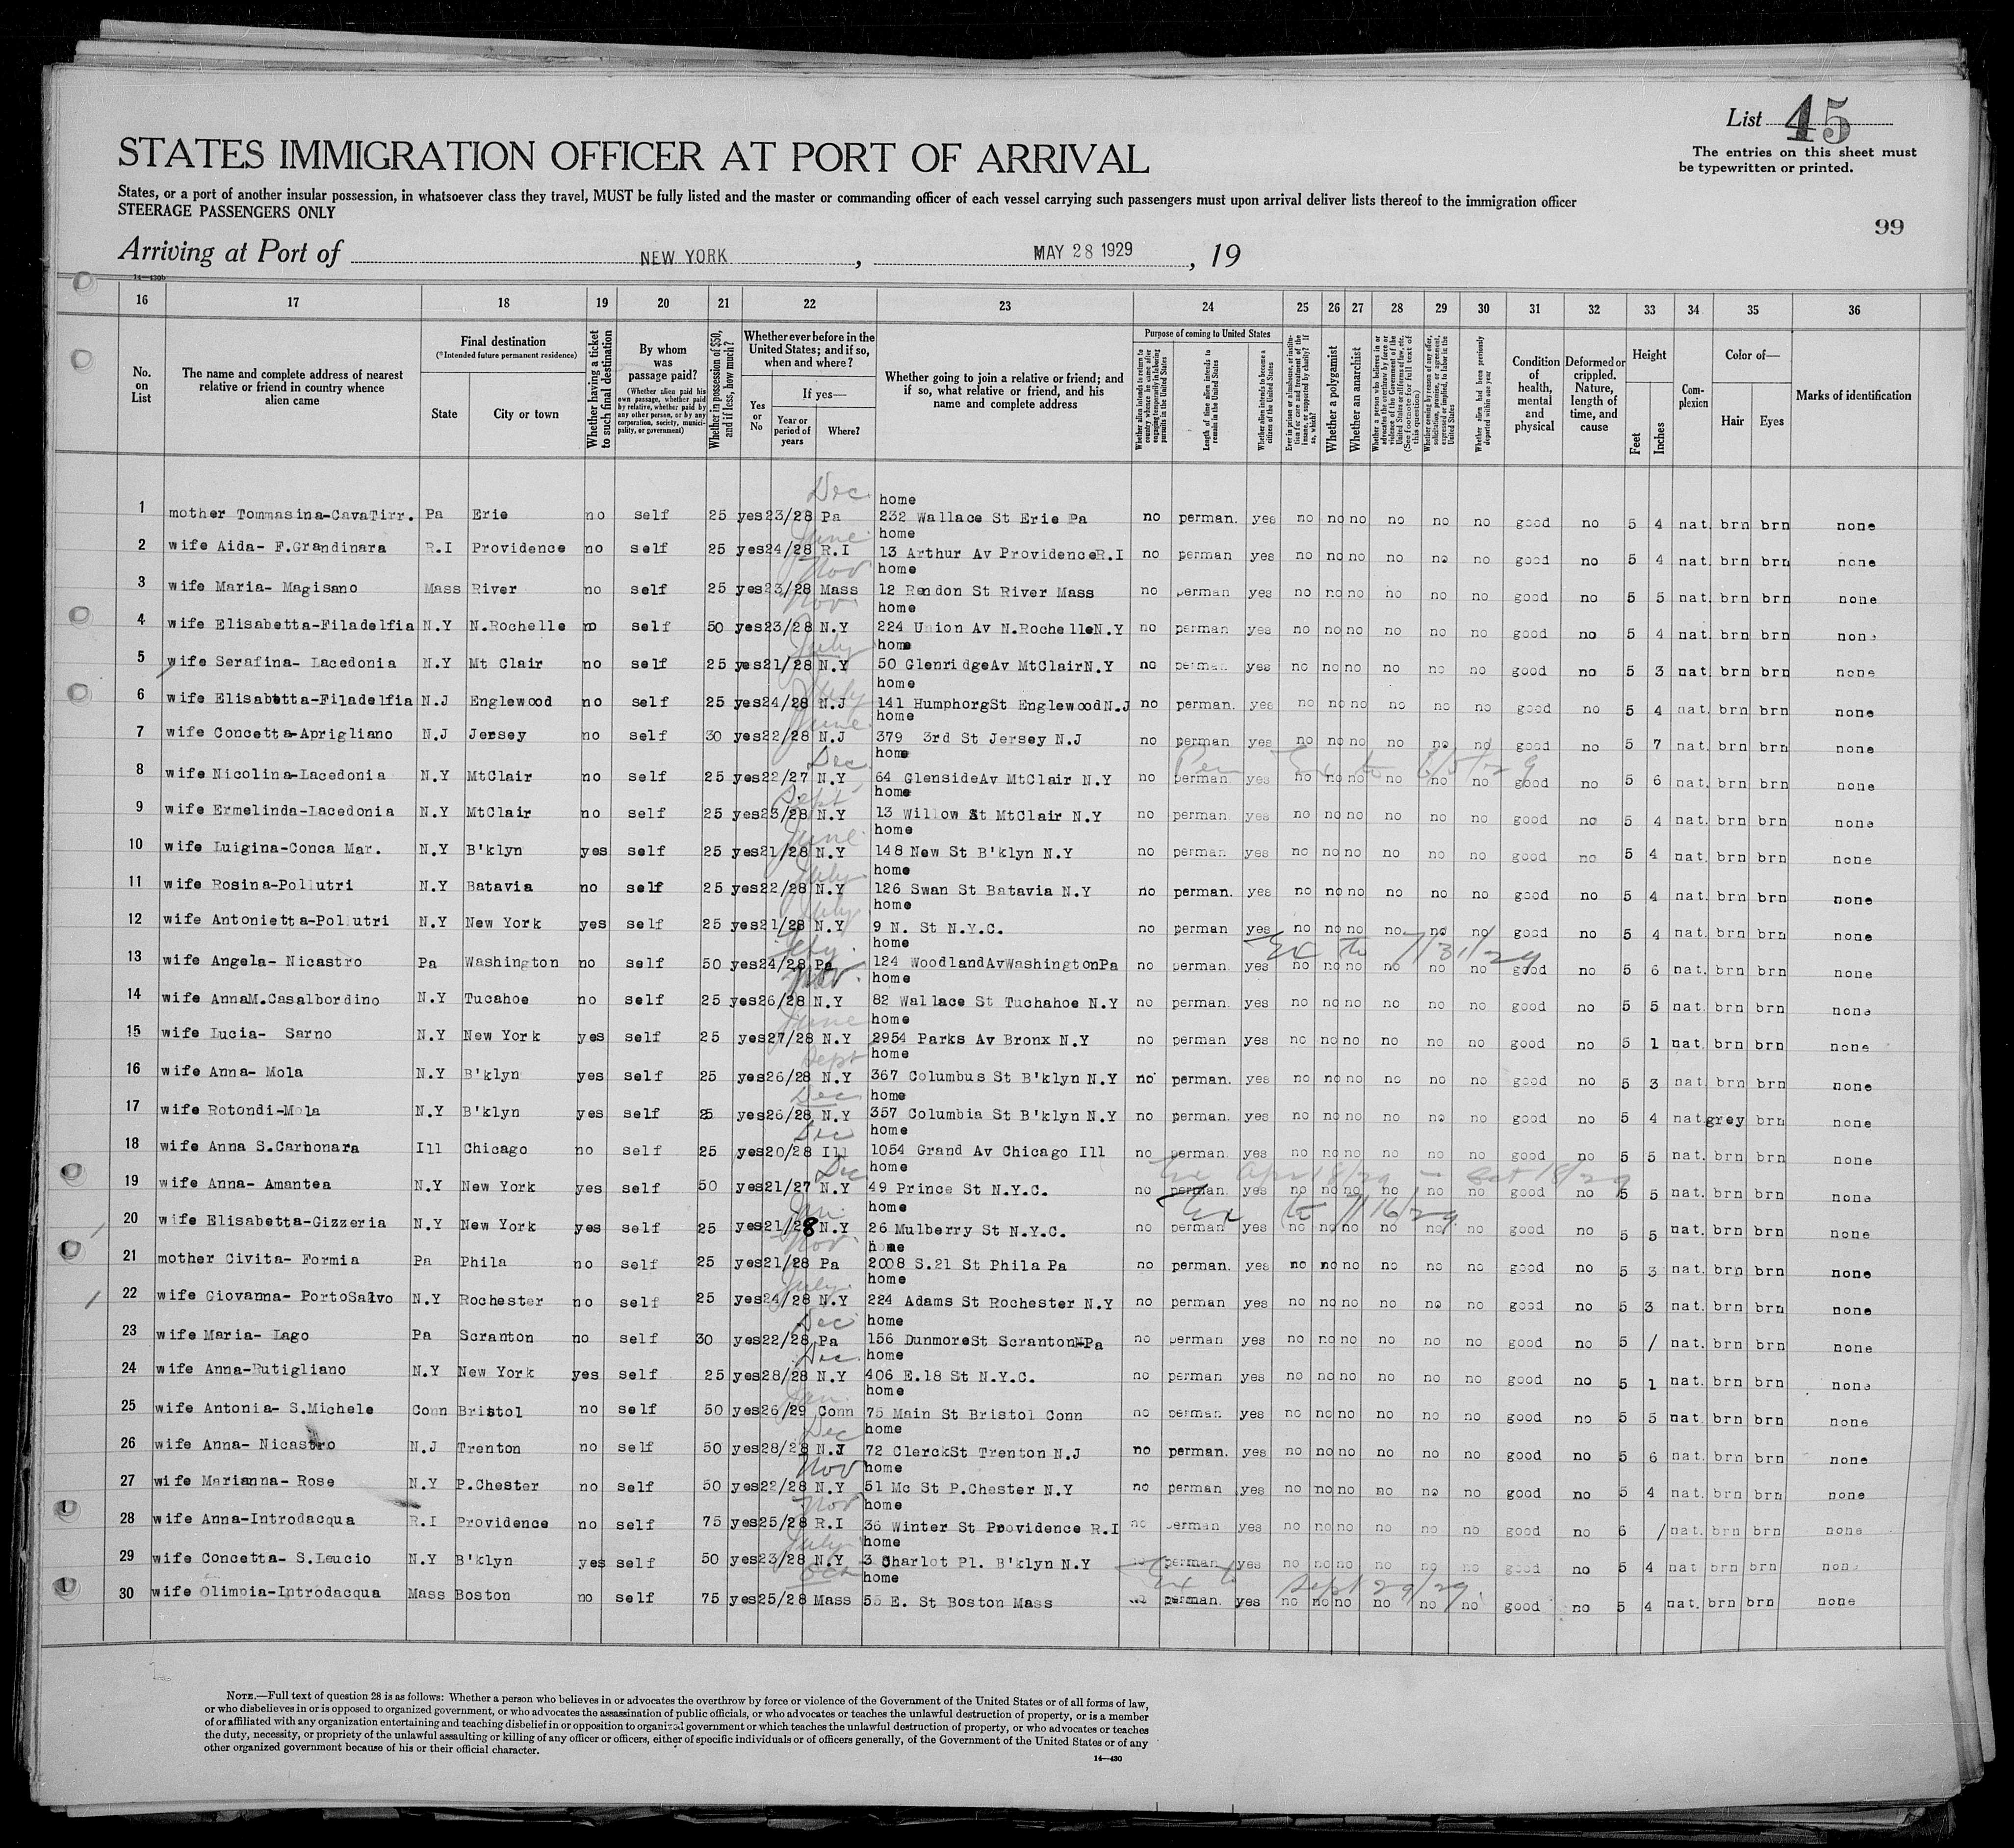 List 45
The entries on this sheet must
be typewritten or printed.
STATES IMMIGRATION OFFICER AT PORT OF ARRIVAL
States, or a port of another insular possession, in whatsoever class they travel, MUST be fully listed and the master or commanding officer of each vessel carrying such passengers must upon arrival deliver lists thereof to the immigration officer
STEERAGE PASSENGERS ONLY
99
Arriving at Port of NEW YORK, MAY 28 1929, 19
14—430b
16 17 18 19 20 21 22 23 24 25 26 27 28 29 30 31 32 33 34 35 36
No. on List
The name and complete address of nearest relative or friend in country whence alien came
Final destination (*Intended future permanent residence)
State
City or town
Whether having a ticket to such final destination
By whom was passage paid? (Whether alien paid his own passage, whether paid by relative, whether paid by any other person, or by any corporation, society, municipality, or government)
Whether in possession of $50, and if less, how much?
Whether ever before in the United States; and if so, when and where?
Yes or No
If yes—
Year or period of years
Where?
Whether going to join a relative or friend; and if so, what relative or friend, and his name and complete address
Purpose of coming to United States
Whether alien intends to return to country whence he came after engaging temporarily in laboring pursuits in the United States
Length of time alien intends to remain in the United States
Whether alien intends to become a citizen of the United States
Ever in prison or almshouse, or institution for care and treatment of the insane, or supported by charity? If so, which?
Whether a polygamist
Whether an anarchist
Whether a person who believes in or advocates the overthrow by force or violence of the Government of the United States or all forms of law, etc. (See footnote for full text of this question)
Whether coming by reason of any offer, solicitation, promise, or agreement, expressed or implied, to labor in the United States
Whether alien had been previously deported within one year
Condition of health, mental and physical
Deformed or crippled. Nature, length of time, and cause
Height
Feet
Inches
Complexion
Color of—
Hair
Eyes
Marks of identification
Dec home
1 mother Tommasina-CavaTirr. Pa Erie no self 25 yes 23/28 Pa 232 Wallace St Erie Pa no perman. yes no no no no no no good no 5 4 nat. brn brn none
June home
2 wife Aida- F.Grandinara R.I Providence no self 25 yes 24/28 R.I 13 Arthur Av Providence R.I no perman yes no no no no no no good no 5 4 nat. brn brn none
Nov home
3 wife Maria- Magisano Mass River no self 25 yes 23/28 Mass 12 Rendon St River Mass no perman yes no no no no no no good no 5 5 nat. brn brn none
Nov. home
4 wife Elisabetta-Filadelfia N.Y N.Rochelle no self 50 yes 23/28 N.Y 224 Union Av N.Rochelle N.Y no perman yes no no no no no no good no 5 4 nat. brn brn none
July home
5 wife Serafina- Lacedonia N.Y Mt Clair no self 25 yes 21/28 N.Y 50 GlenridgeAv MtClair N.Y no perman yes no no no no no no good no 5 3 nat. brn brn none
July home
6 wife Elisabetta-Filadelfia N.J Englewood no self 25 yes 24/28 N.J 141 HumphorgSt Englewood N.J no perman. yes no no no no no no good no 5 4 nat. brn brn none
June home
7 wife Concetta-Aprigliano N.J Jersey no self 30 yes 22/28 N.J 379 3rd St Jersey N.J no perman yes no no no no no no good no 5 7 nat. brn brn none
Dec home Per Ex to 6/5/29
8 wife Nicolina-Lacedonia N.Y MtClair no self 25 yes 22/27 N.Y 64 GlensideAv MtClair N.Y no perman yes no no no no no no good no 5 6 nat. brn brn none
Sept home
9 wife Ermelinda-Lacedonia N.Y MtClair no self 25 yes 23/28 N.Y 13 Willow St MtClair N.Y no perman. yes no no no no no no good no 5 4 nat. brn brn none
June home
10 wife Luigina-Conca Mar. N.Y B'klyn yes self 25 yes 21/28 N.Y 148 New St B'klyn N.Y no perman. yes no no no no no no good no 5 4 nat. brn brn none
July home
11 wife Rosina-Pollutri N.Y Batavia no self 25 yes 22/28 N.Y 126 Swan St Batavia N.Y no perman. yes no no no no no no good no 5 4 nat. brn brn none
July home
12 wife Antonietta-Pollutri N.Y New York yes self 25 yes 21/28 N.Y 9 N. St N.Y.C. no perman yes no no no no no no good no 5 4 nat. brn brn none
Feby. home Ex to 7/31/29
13 wife Angela- Nicastro Pa Washington no self 50 yes 24/28 Pa 124 WoodlandAvWashingtonPa no perman. yes no no no no no no good no 5 6 nat. brn brn none
Nov. home
14 wife AnnaM.Casalbordino N.Y Tucahoe no self 25 yes 26/28 N.Y 82 Wallace St Tuchahoe N.Y no perman. yes no no no no no no good no 5 5 nat. brn brn none
June home
15 wife Lucia- Sarno N.Y New York yes self 25 yes 27/28 N.Y 2954 Parks Av Bronx N.Y no perman yes no no no no no no good no 5 1 nat. brn brn none
Sept home
16 wife Anna- Mola N.Y B'klyn yes self 25 yes 26/28 N.Y 367 Columbus St B'klyn N.Y no perman. yes no no no no no no good no 5 3 nat brn brn none
Dec home
17 wife Rotondi-Mola N.Y B'klyn yes self 25 yes 26/28 N.Y 357 Columbia St B'klyn N.Y no perman. yes no no no no no no good no 5 4 nat grey brn none
Dec home
18 wife Anna S.Carbonara Ill Chicago no self 25 yes 20/28 Ill 1054 Grand Av Chicago Ill no perman. yes no no no no no no good no 5 5 nat. brn brn none
Dec home Ex Apr 18/29 - Oct 18/29
19 wife Anna- Amantea N.Y New York yes self 50 yes 21/27 N.Y 49 Prince St N.Y.C. no perman. yes no no no no no no good no 5 5 nat. brn brn none
Jan. home Ex to 7/16/29
20 wife Elisabetta-Gizzeria N.Y New York yes self 25 yes 21/28 N.Y 26 Mulberry St N.Y.C. no perman yes no no no no no no good no 5 5 nat. brn brn none
Nov. home
21 mother Civita- Formia Pa Phila no self 25 yes 21/28 Pa 2008 S.21 St Phila Pa no perman. yes no no no no no no good no 5 3 nat. brn brn none
July. home
22 wife Giovanna- PortoSalvo N.Y Rochester no self 25 yes 24/28 N.Y 224 Adams St Rochester N.Y no perman yes no no no no no no good no 5 3 nat. brn brn none
Dec home
23 wife Maria- Lago Pa Scranton no self 30 yes 22/28 Pa 156 DunmoreSt Scranton Pa no perman yes no no no no no no good no 5 / nat. brn brn none
Dec. home
24 wife Anna-Rutigliano N.Y New York yes self 25 yes 28/28 N.Y 406 E.18 St N.Y.C. no perman yes no no no no no no good no 5 1 nat. brn brn none
Jan. home
25 wife Antonia- S.Michele Conn Bristol no self 50 yes 26/29 Conn 75 Main St Bristol Conn no perman. yes no no no no no no good no 5 5 nat. brn brn none
Dec home
26 wife Anna- Nicastro N.J Trenton no self 50 yes 28/28 N.J 72 ClerckSt Trenton N.J no perman. yes no no no no no no good no 5 6 nat. brn brn none
Nov home
27 wife Marianna- Rose N.Y P.Chester no self 50 yes 22/28 N.Y 51 Mc St P.Chester N.Y no perman yes no no no no no no good no 5 4 nat. brn brn none
Nov home
28 wife Anna-Introdacqua R.I Providence no self 75 yes 25/28 R.I 36 Winter St Providence R.I no perman yes no no no no no no good no 6 / nat. brn brn none
July home
29 wife Concetta- S.Leucio N.Y B'klyn yes self 50 yes 23/28 N.Y 3 Charlot Pl. B'klyn N.Y perman yes no no no no no no good no 5 4 nat brn brn none
Oct home Ex to Sept 29/29.
30 wife Olimpia-Introdacqua Mass Boston no self 75 yes 25/28 Mass 55 E. St Boston Mass perman. yes no no no no no no good no 5 4 nat. brn brn none
NOTE.—Full text of question 28 is as follows: Whether a person who believes in or advocates the overthrow by force or violence of the Government of the United States or of all forms of law,
or who disbelieves in or is opposed to organized government, or who advocates the assassination of public officials, or who advocates or teaches the unlawful destruction of property, or is a member
of or affiliated with any organization entertaining and teaching disbelief in or opposition to organized government or which teaches the unlawful destruction of property, or who advocates or teaches
the duty, necessity, or propriety of the unlawful assaulting or killing of any officer or officers, either of specific individuals or of officers generally, of the Government of the United States or of any
other organized government because of his or their official character.
14—430